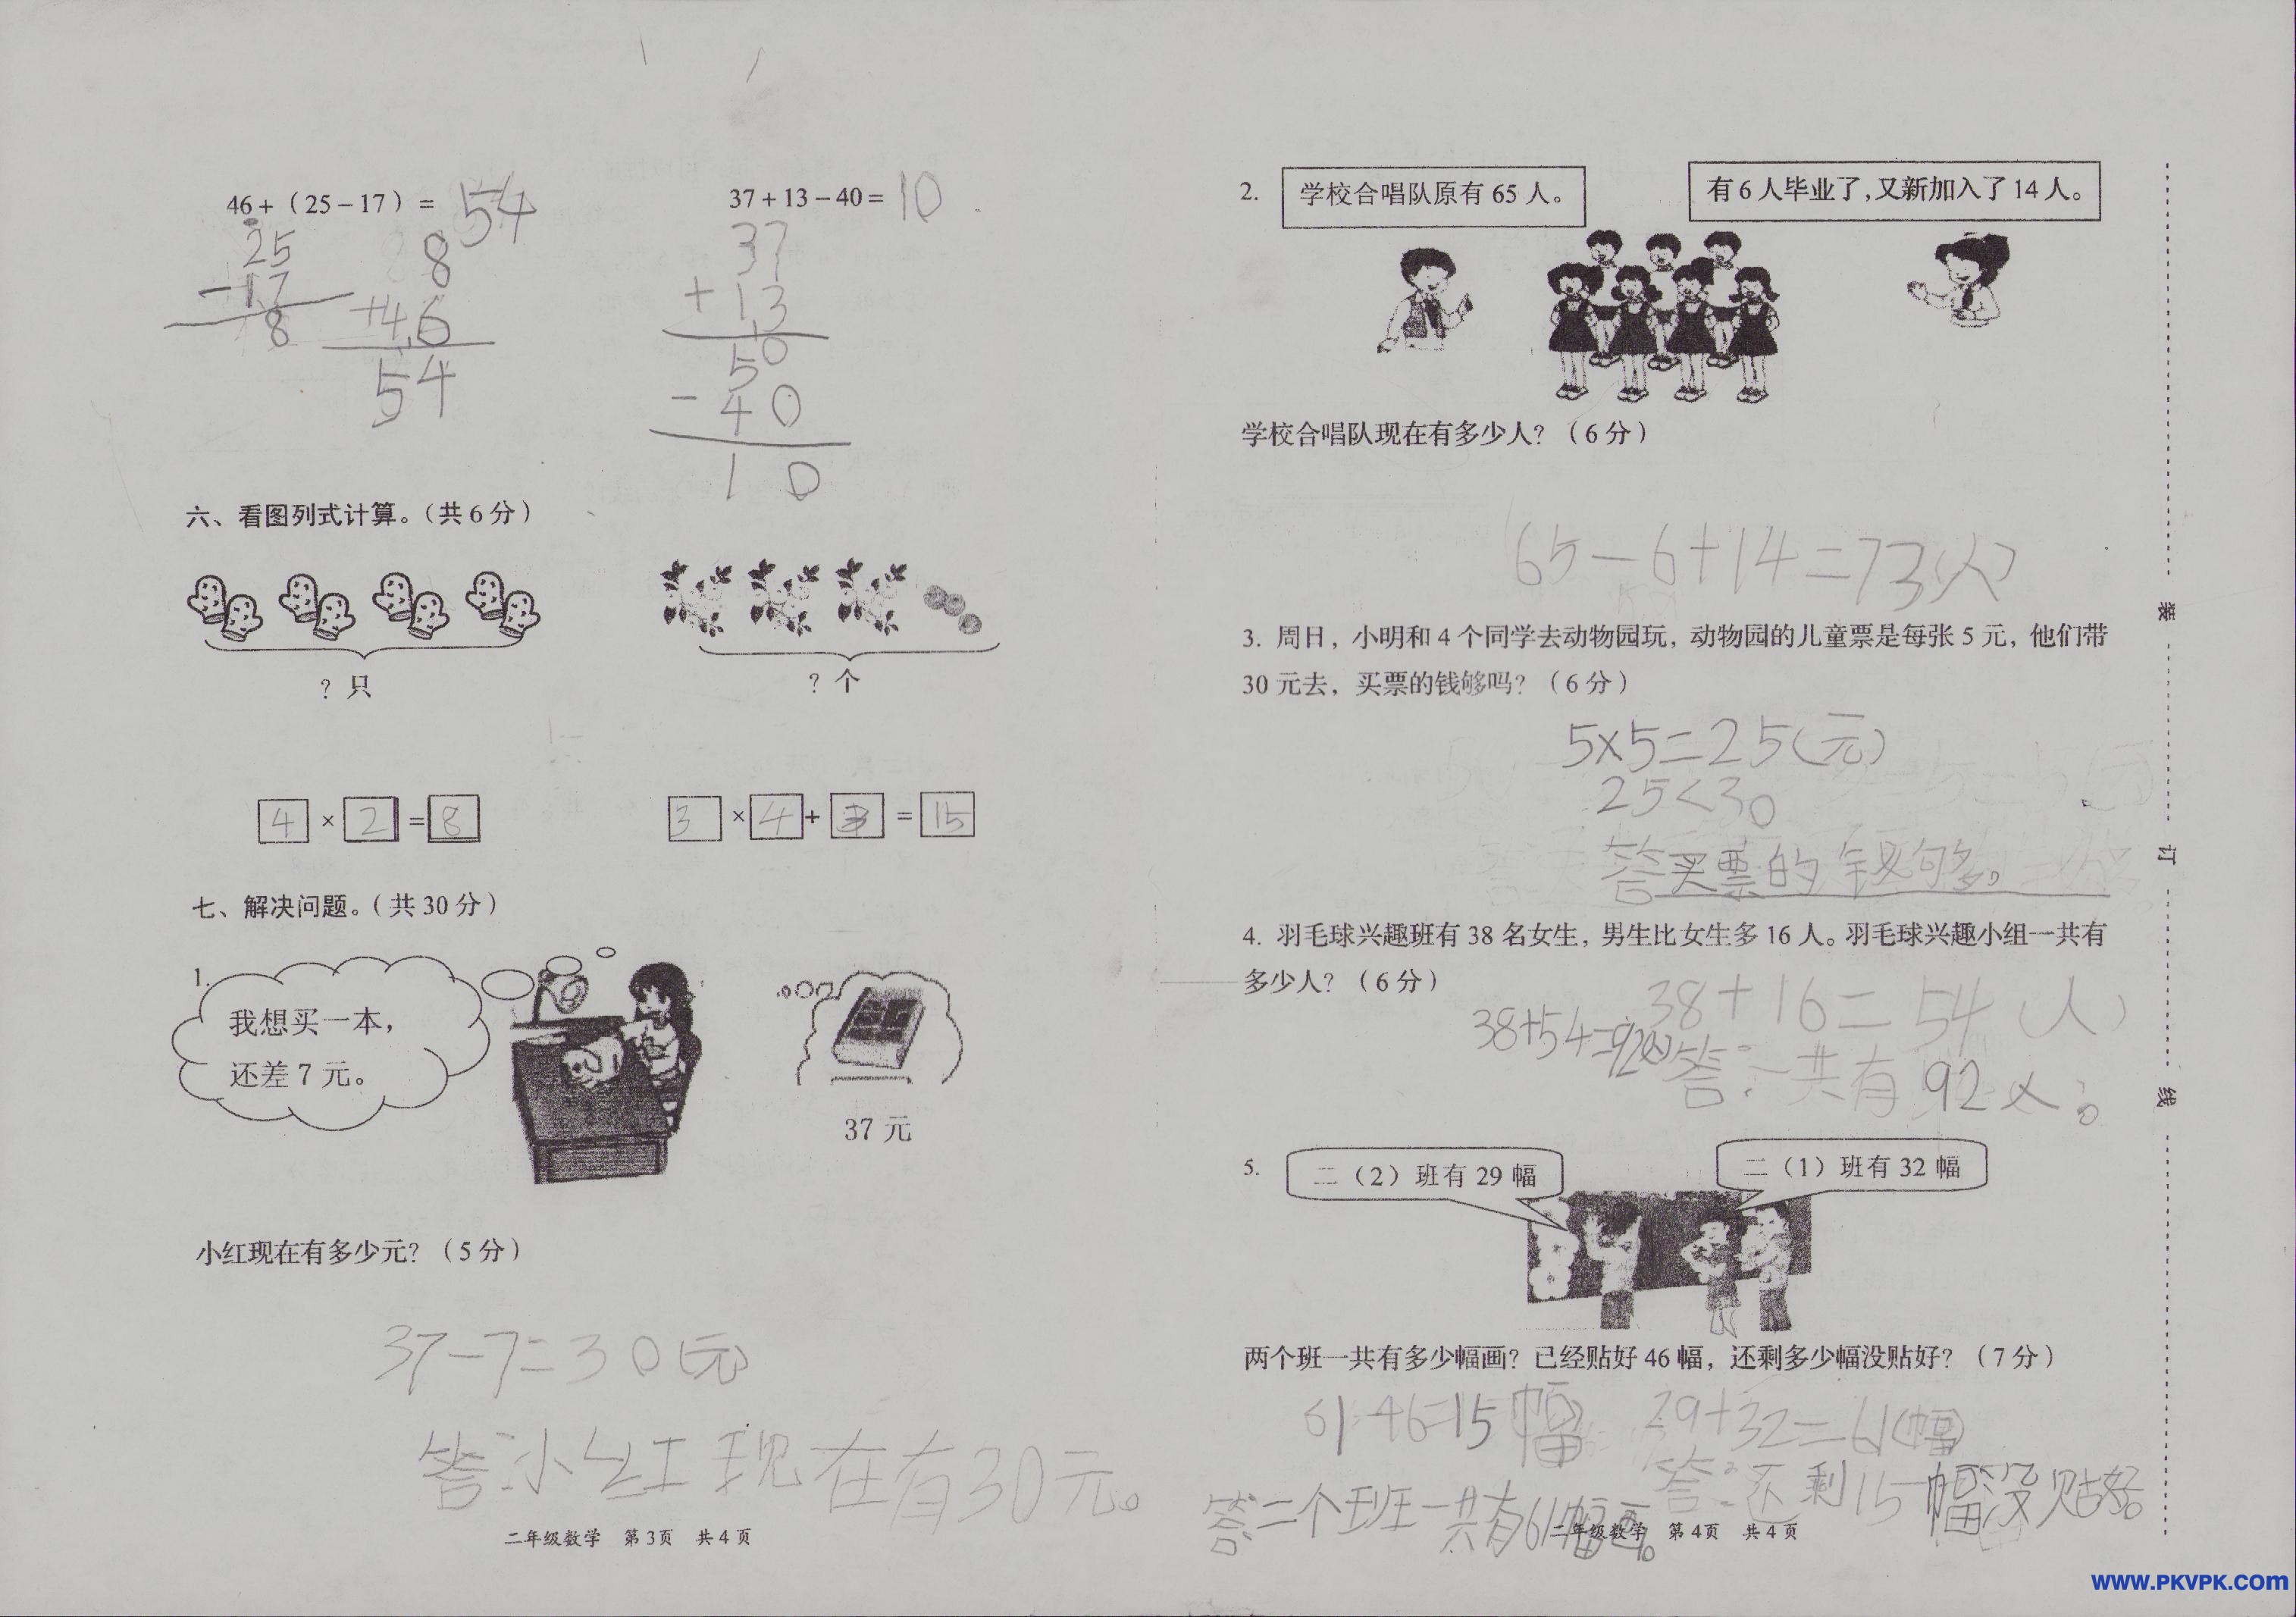 46+（25－17）= 54
25
－17
8
8
+46
54
37+13－40= 10
37
+13
50
－40
10
六、看图列式计算。（共6分）
？只
？个
4 × 2 = 8
3 × 4 + 3 = 15
七、解决问题。（共30分）
1.
我想买一本，
还差7元。
37元
小红现在有多少元？（5分）
37－7=30（元）
答：小红现在有30元。
二年级数学 第3页 共4页
2. 学校合唱队原有65人。
有6人毕业了，又新加入了14人。
学校合唱队现在有多少人？（6分）
65－6+14=73（人）
3. 周日，小明和4个同学去动物园玩，动物园的儿童票是每张5元，他们带
30元去，买票的钱够吗？（6分）
5×5=25（元）
25<30
答买票的钱够。
4. 羽毛球兴趣班有38名女生，男生比女生多16人。羽毛球兴趣小组一共有
多少人？（6分）
38+16=54（人）
38+54=92人
答：一共有92人。
5.
二（2）班有29幅
二（1）班有32幅
两个班一共有多少幅画？已经贴好46幅，还剩多少幅没贴好？（7分）
61-46=15幅
29+32=61（幅）
答：还剩15幅没贴好。
答：二个班一共有61幅画。
二年级数学 第4页 共4页
装
订
线
www.PKVPK.com